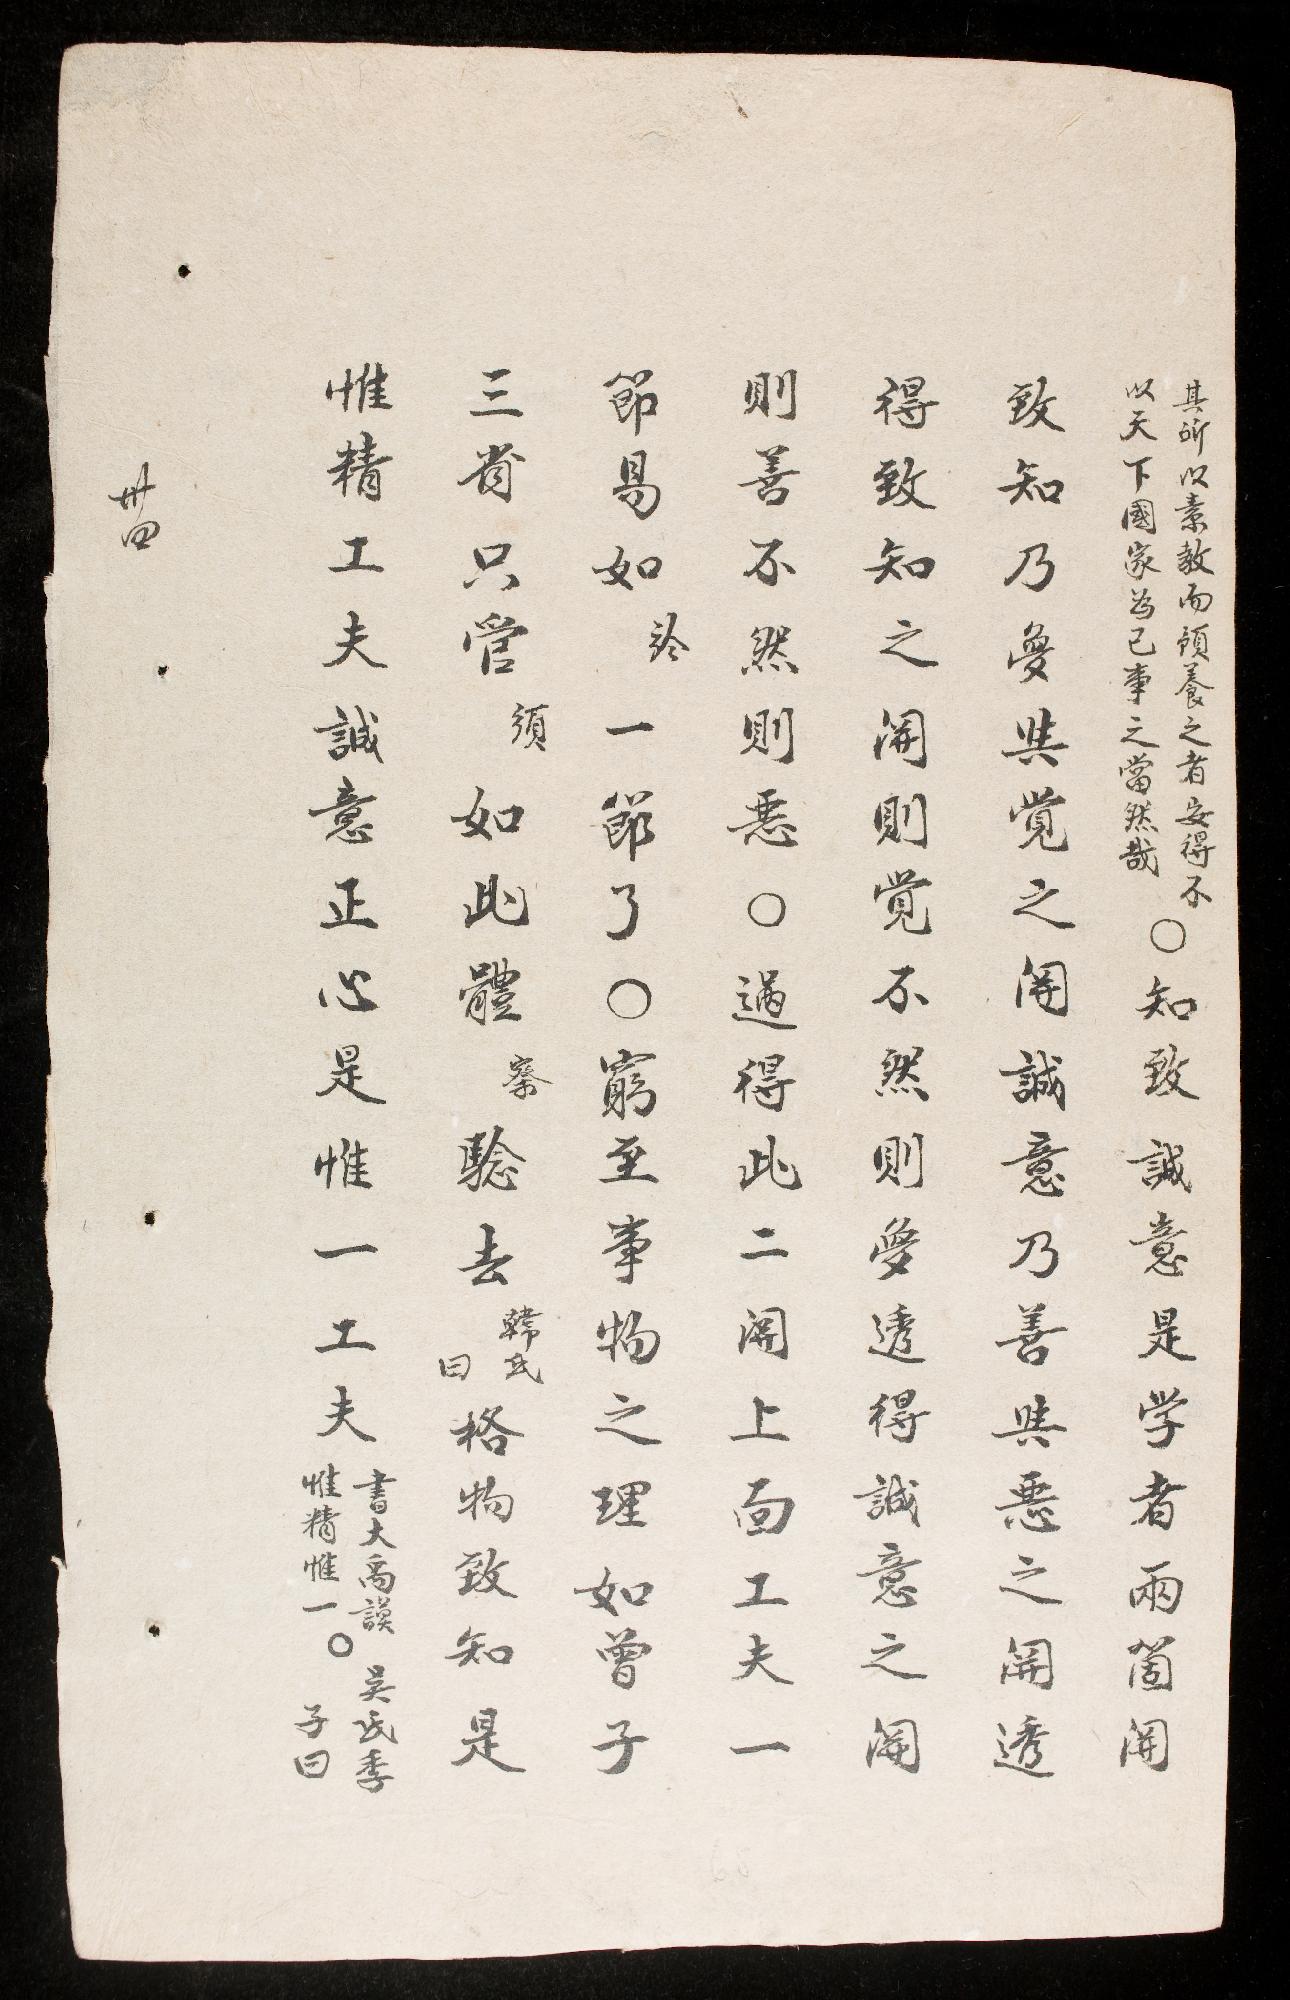 其所以素教而預養之者安得不
以天下國家為已事之當然哉
○知致誠意是学者兩箇関
致知乃夢與覚之関誠意乃善與悪之関透
得致知之関則覚不然則夢透得誠意之関
則善不然則悪○過得此二関上面工夫一
節易如於一節了○窮至事物之理如曾子
三省只管須如此體察驗去韓氏曰格物致知是
惟精工夫誠意正心是惟一工夫
書大禹謨
惟精惟一○
吳氏季
子曰
卅四